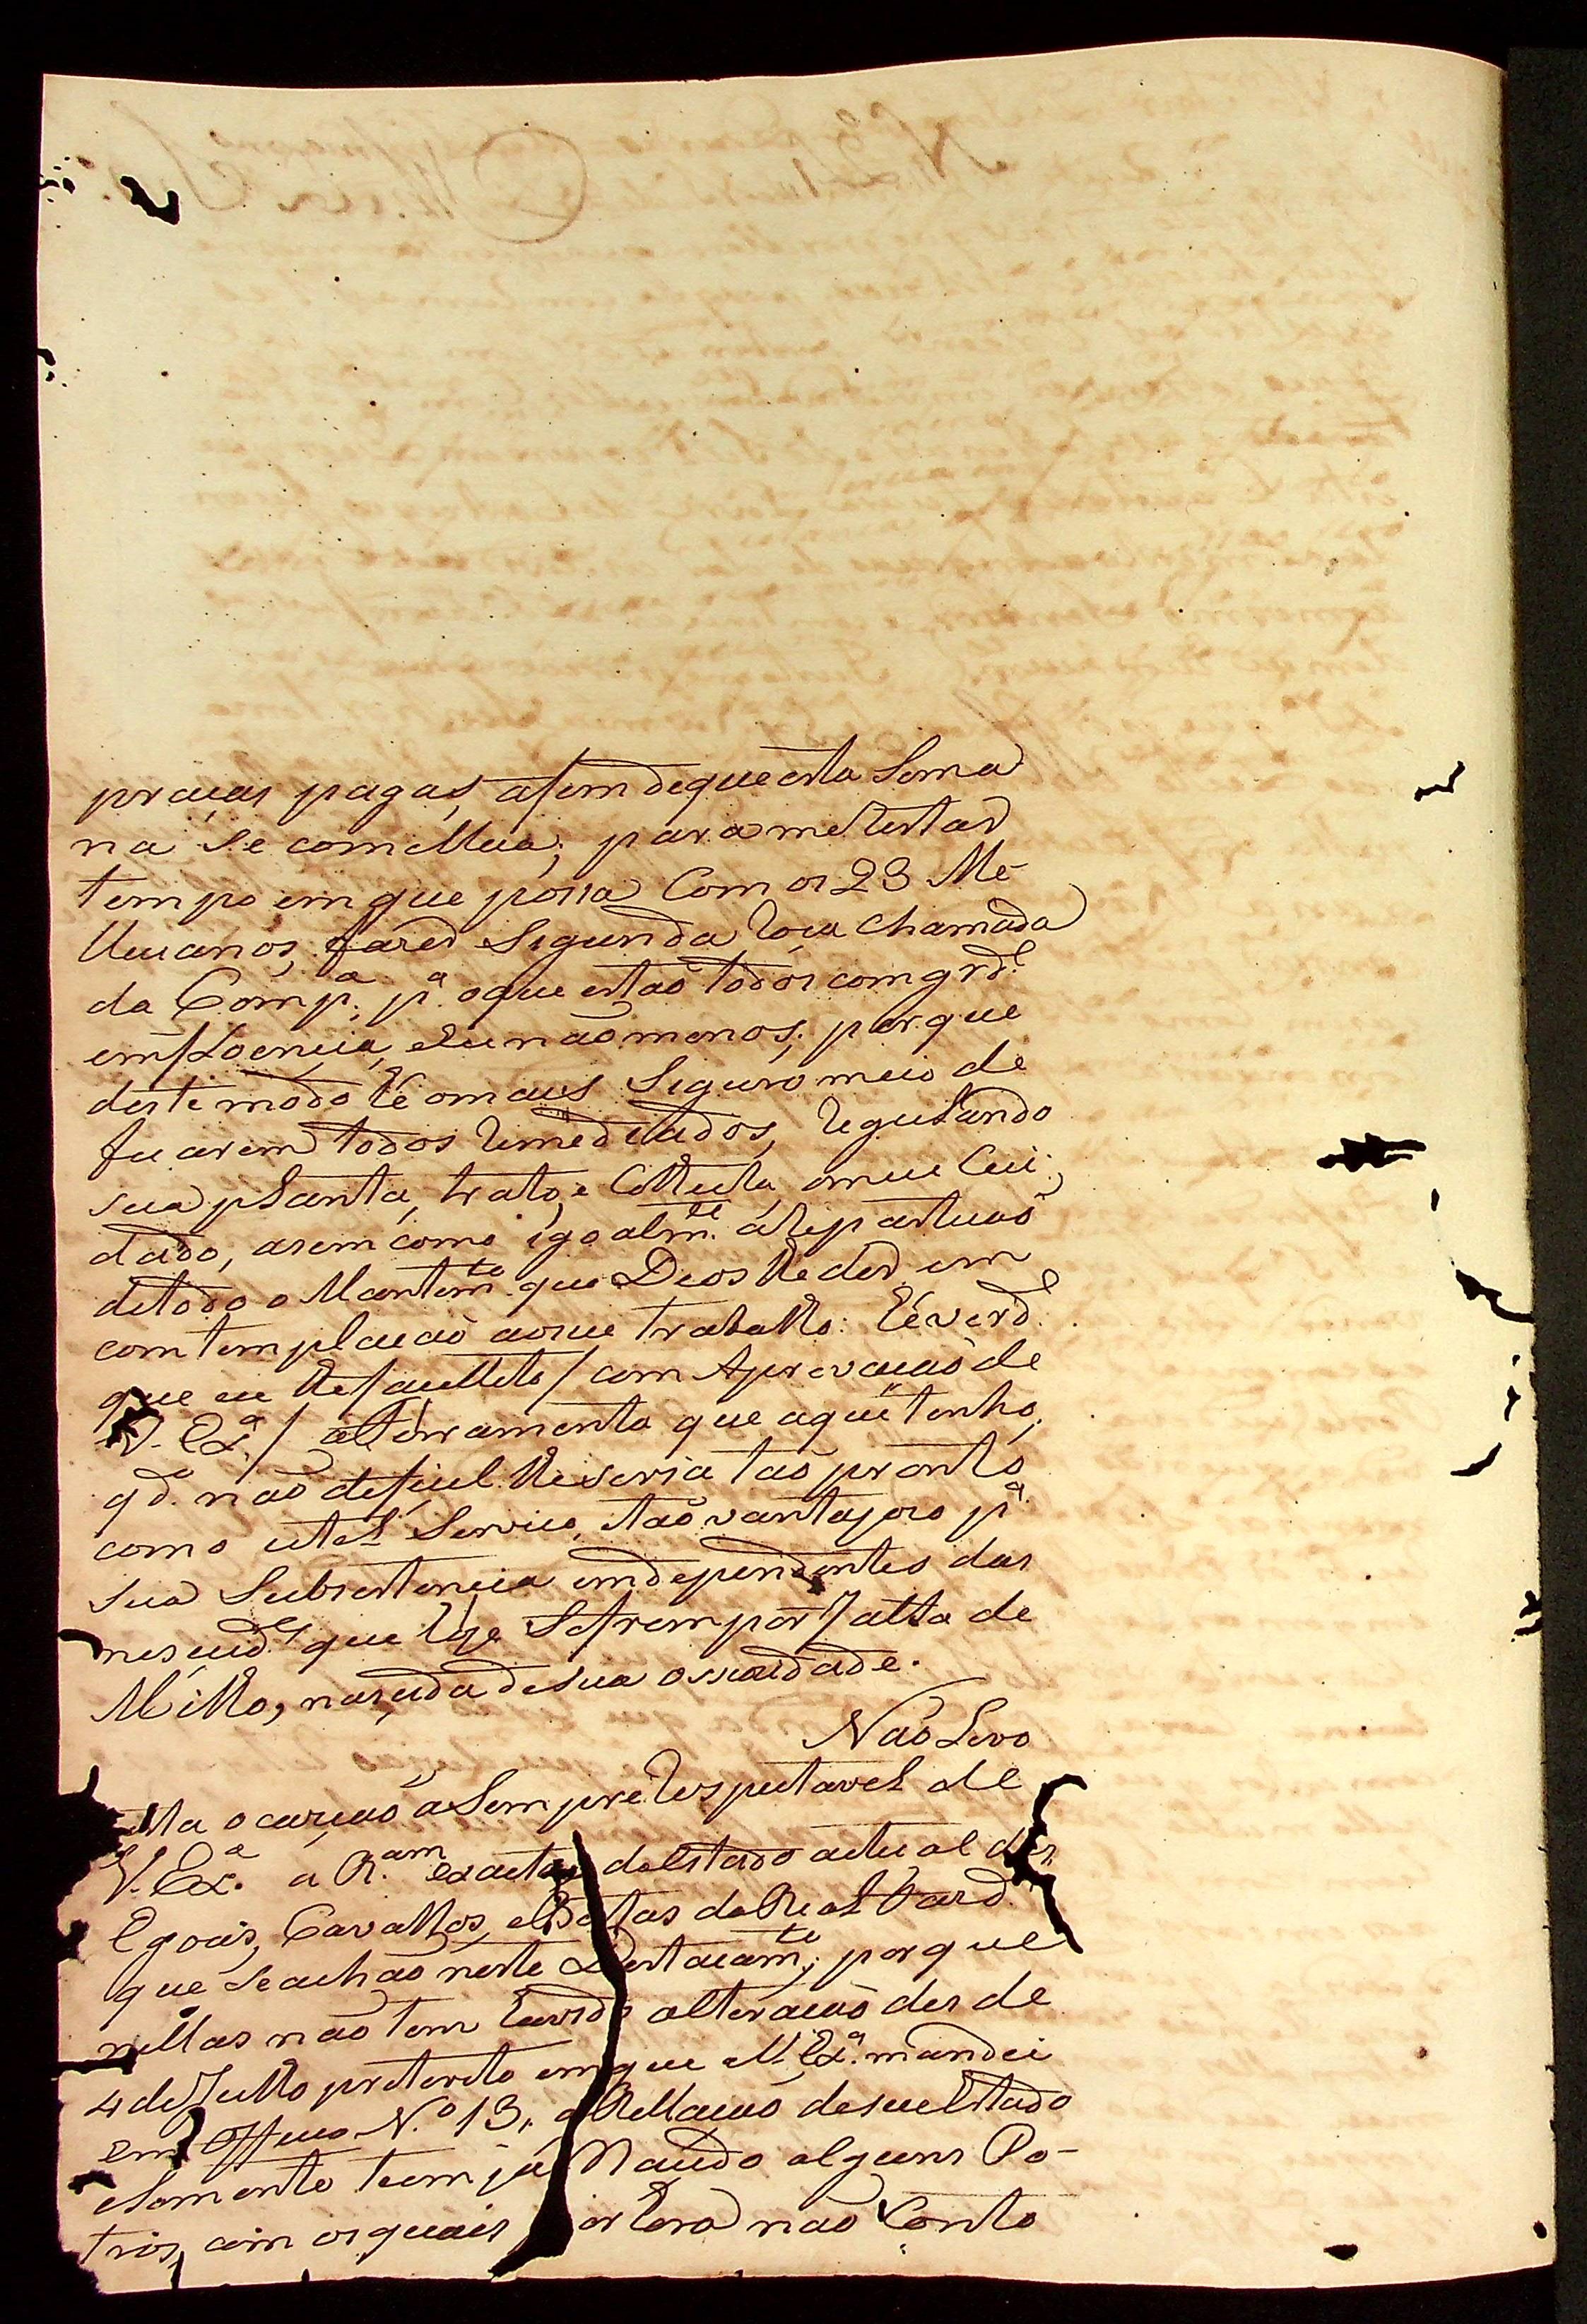 praças pagas, afem de que esta Soma
na se comclua; para me restar
tempo em que possa Com os 23 Me-
licianos, fazer Segunda roça chamada
da Comp.ª; p.ª oque estaõ todos com grd.e
emfloencia, eEu naõ menos; por que
deste modo hé omais Seguro meio de
ficarem todos remediados, regulando
sua planta, trato, e Colheita, omeu Cui-
dado, asem como igoalm.te areparticaõ
detodo o Mantem.to que Deos lhe der, em
comtemplacaõ aoseu trabalho: hé verd.e
que eu lhe facelleto / com Aprovacaõ de
V. Ex.ª / aferramenta que aqui tenho,
q.do naõ deficel lhe seria taõ pronto
como utel Servico, etaõ vantajoso p.ª
sua Subsestencia endependentes das
necesd.es que hoje Sofrem por falta de
Milho, nascida desua ossiosidade.
Naõ Levo
esta ocaziaõ aSempre respeitavel de
V. Ex.ª a R.am exacta doEstado actual das
Egoas, Cavallos, eBestas daReal Fazd.ª
que Seachaõ neste Destacam.to; por que
nellas naõ tem havido alteracaõ des de
4 deJulho preterito emque aV. Ex.ª mandei
em Officio N.º 13, aRellacaõ deseuEstado
eSomente tem já Nacido alguns Po-
tros, com os quais por hora naõ Conto